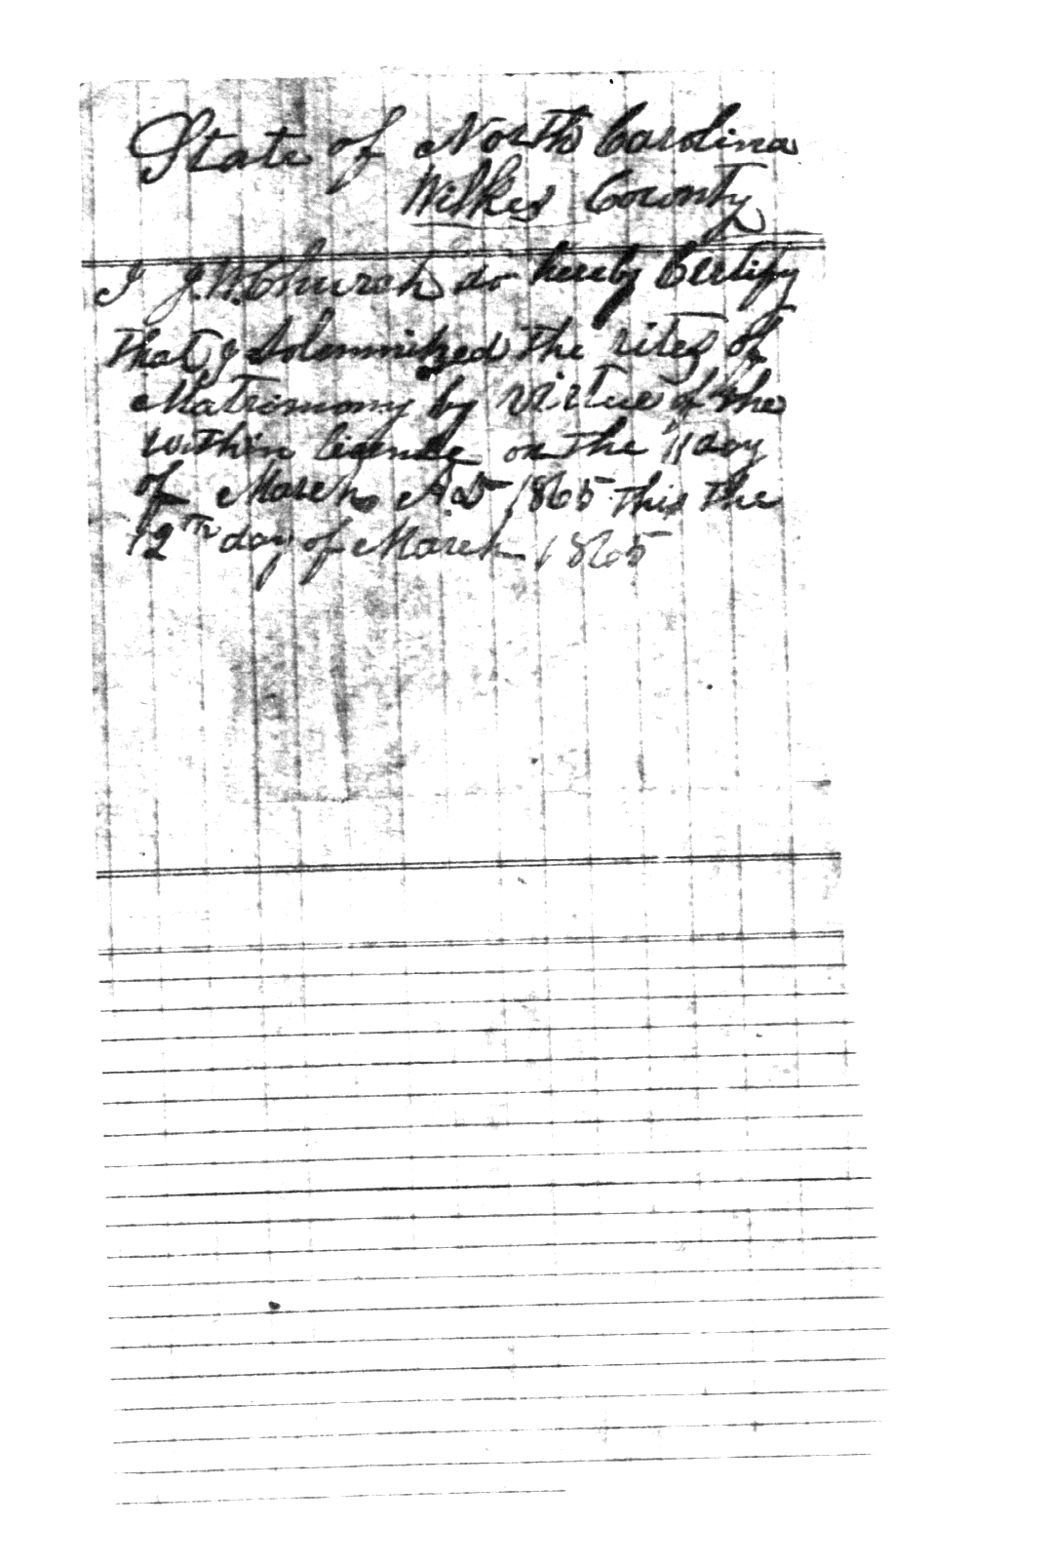 State of North Carolina
Wilkes County
I J.W. Church do hereby Certify
that I Solemnized the rites of
Matrimony by virtue of the
within license on the 11 day
of March A.D 1865 this the
12th day of March 1865